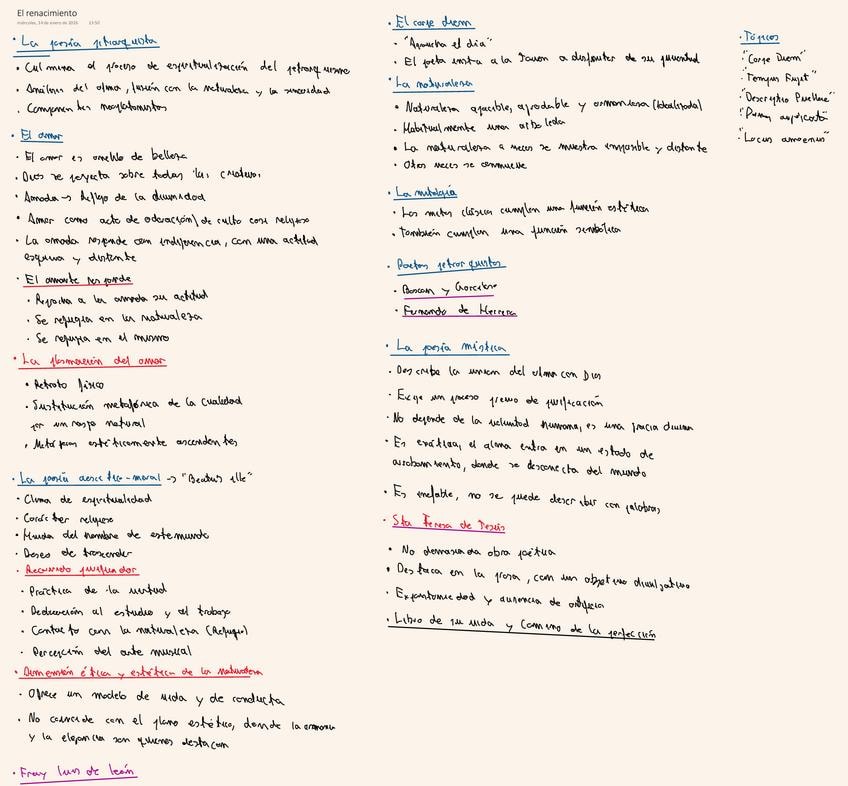 El renacimiento
miércoles, 14 de enero de 2026 13:50
· La poesía petrarquista
· Culmina el proceso de espiritualización del petrarquismo
· Análisis del alma, fusión con la naturaleza y la sinceridad
· Componentes neoplatonistas
· El amor
· El amor es anhelo de belleza
· Dios se proyecta sobre todas las criaturas
· Amada → Reflejo de la divinidad
· Amor como acto de adoración/de culto casi religioso
· La amada responde con indiferencia, con una actitud
esquiva y distante
· El amante responde
· Reprocha a la amada su actitud
· Se refugia en la naturaleza
· Se refugia en el mismo
· La plasmación del amor
· Retrato físico
· Sustitución metafórica de la cualidad
por un rasgo natural
· Metáforas estéticamente ascendentes
· La poesía ascético-moral → "Beatus ille"
· Clima de espiritualidad
· Carácter religioso
· Huida del hombre de este mundo
· Deseo de trascender
· Recorrido purificador
· Práctica de la virtud
· Dedicación al estudio y al trabajo
· Contacto con la naturaleza (Refugio)
· Percepción del arte musical
· Dimensión ética y estética de la naturaleza
· Ofrece un modelo de vida y de conducta
· No coincide con el plano estético, donde la armonía
y la elegancia son quienes destacan
· Fray Luis de león
· El carpe diem
· "Aprovecha el día"
· El poeta insta a la Joven a disfrutar de su juventud
· La naturaleza
· Naturaleza apacible, agradable y armoniosa (Idealizada)
· Habitualmente una arboleda
· La naturaleza a veces se muestra impasible y distante
· Otras veces se conmueve
· La mitología
· Los mitos clásicos cumplen una función estética
· También cumplen una función simbólica
· Poetas petrarquistas
· Boscan y Garcilaso
· Fernando de Herrera
· La poesía mística
· Describe la unión del alma con Dios
· Exige un proceso previo de purificación
· No depende de la voluntad humana, es una gracia divina
· Es extática, el alma entra en un estado de
arrobamiento, donde se desconecta del mundo
· Es inefable, no se puede describir con palabras
· Sta Teresa de Jesús
· No demasiada obra poética
· Destaca en la prosa, con un objetivo divulgativo
· Espontaneidad y ausencia de artificio
· Libro de su vida y Camino de la perfección
· Tópicos
· "Carpe Diem"
· "Tempus Fugit"
· "Descriptio Puellae"
· "Locus amoenus"